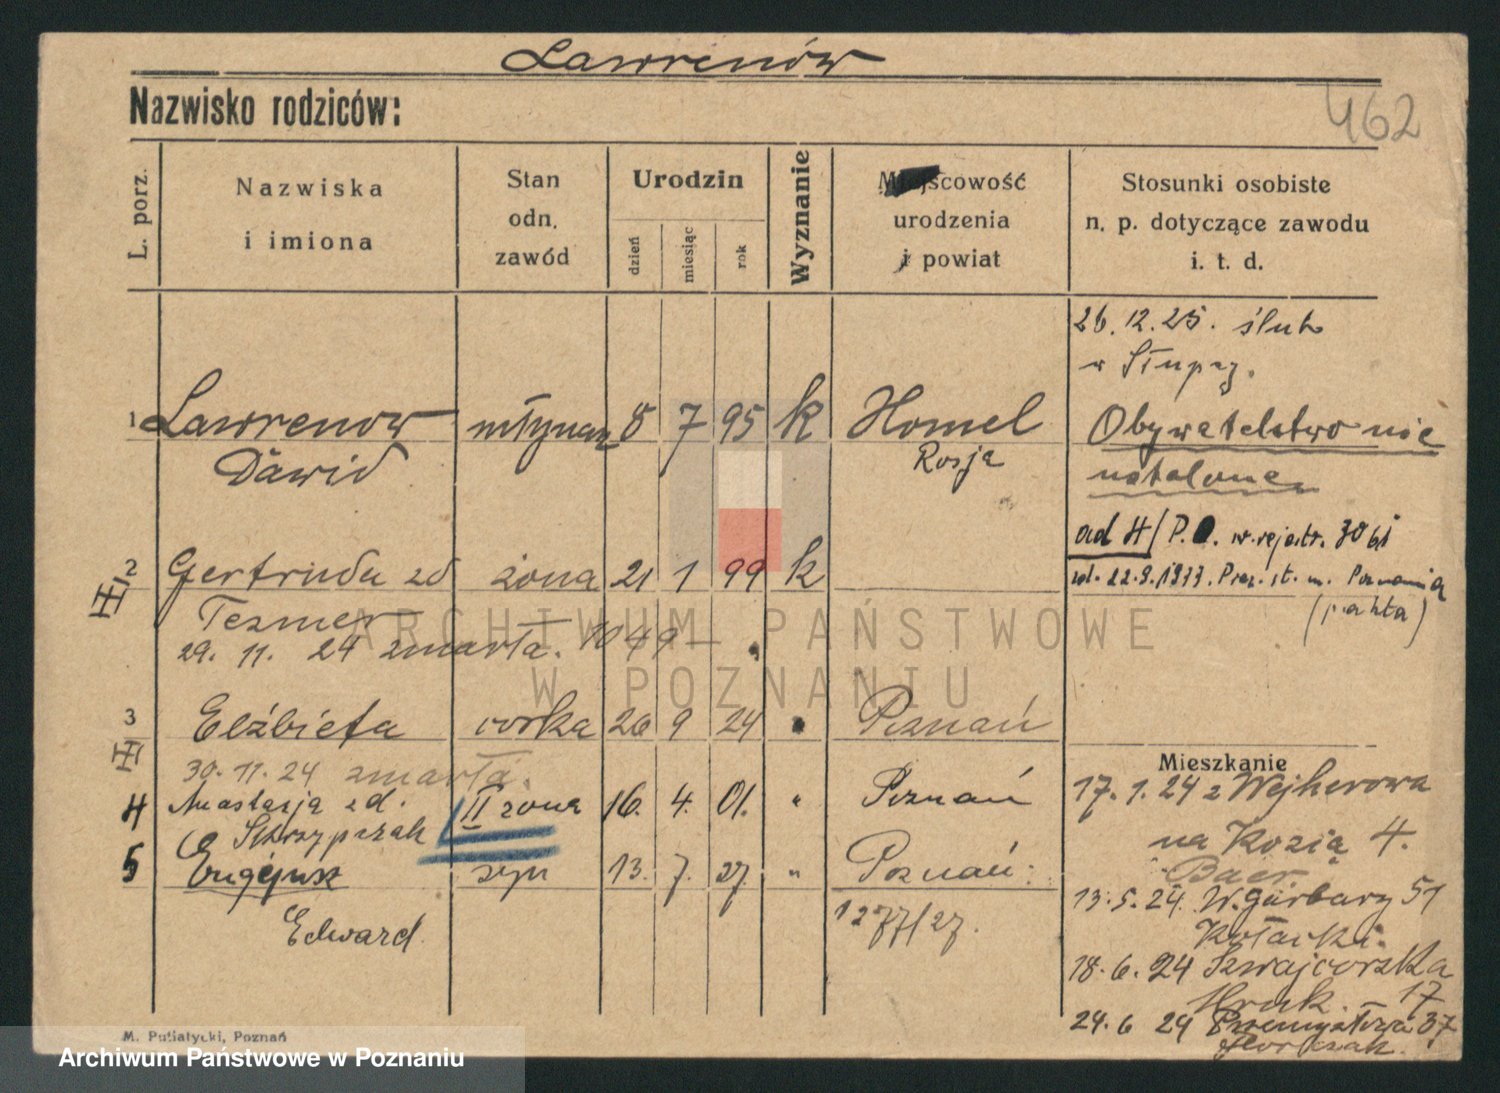 Lawrenów
Nazwisko rodziców:
462
L. porz.
Nazwiska
i imiona
Stan
odn.
zawód
Urodzin
dzień
miesiąc
rok
Wyznanie
Miejscowość
urodzenia
i powiat
Stosunki osobiste
n. p. dotyczące zawodu
i. t. d.
26.12.25. ślub
w Słupcy.
1 Lawrenow młynarz 8 7 95 k Homel
Dawid Rosja
Obywatelstwo nie
ustalone
ad 4/ P.O. w rejestr. 3061
zd. 22.9.1933. Prez. st. m. Poznania
2 Gertruda zd żona 21 1 99 k
Tezmer
29. 11. 24 zmarła. 1049
3 Elżbieta córka 26 9 24 " Poznań
30.11.24 zmarła.
4 Anastazja zd. II żona 16. 4. 01. " Poznań
Skrzypczak
5 Eugejusz syn 13. 7. 27. " Poznań:
Edward 1277/27.
Mieszkanie
17. 1. 24 z Wejherowa
na Kozią 4.
Baer
13.5.24. W. Garbary 51
Kołacki.
18.6.24 Szwajcarska
17
24.6 24 Przemysłowa 37
M. Putiatycki, Poznań
ARCHIWUM PAŃSTWOWE
W POZNANIU
Archiwum Państwowe w Poznaniu